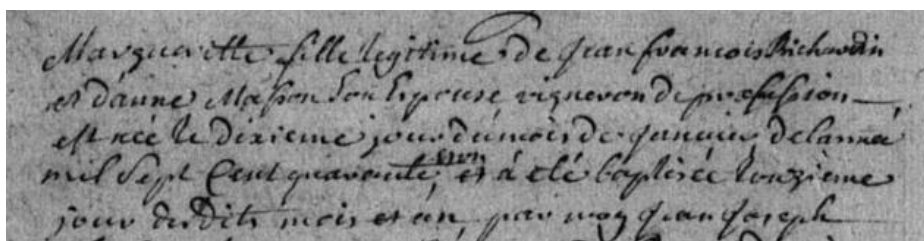 Margueritte fille legitime de Jean francois Richardin
et d'anne Masson Son Epouse vigneron de profession
est née le dixieme jour du mois de janvier de lanneé
mil Sept Cent quarante et á eté baptisée lonzieme
jour desdits mois et án, par moy jean joseph